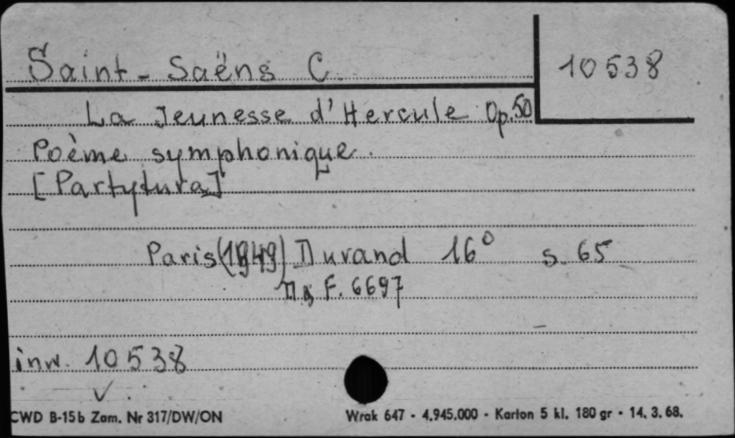 Saint-Saëns C.
10538
La Jeunesse d'Hercule Op.50
Poème symphonique.
[Partytura]
Paris (1949) Durand 16° s. 65
D & F. 6697
inw. 10538
CWD B-15b Zam. Nr 317/DW/ON
Wrak 647 - 4.945.000 - Karton 5 kl. 180 gr - 14. 3. 68.